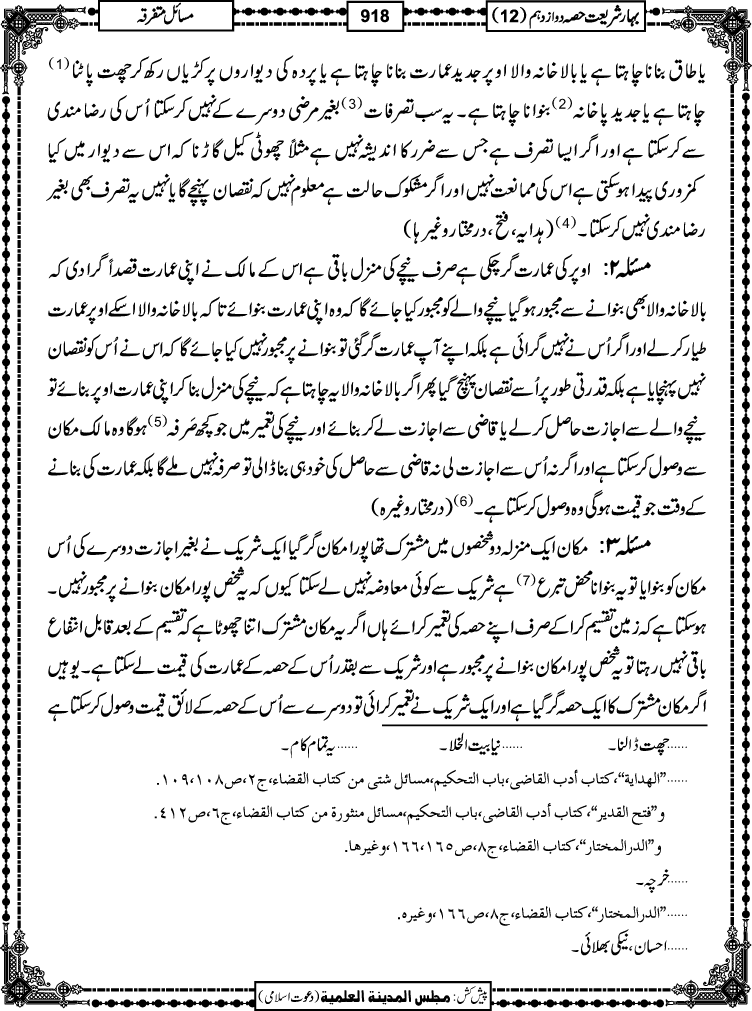 بہار شریعت حصہ دوازدہم (12)
918
مسائل متفرقہ
یا طاق بنانا چاہتا ہے یا بالا خانہ والا اوپر جدید عمارت بنانا چاہتا ہے یا پردہ کی دیواروں پر کڑیاں رکھ کر چھت پاٹنا(1)
چاہتا ہے یا جدید پاخانہ(2) بنوانا چاہتا ہے۔ یہ سب تصرفات(3) بغیر مرضی دوسرے کے نہیں کرسکتا اُس کی رضامندی
سے کرسکتا ہے اور اگر ایسا تصرف ہے جس سے ضرر کا اندیشہ نہیں ہے مثلاً چھوٹی کیل گاڑنا کہ اس سے دیوار میں کیا
کمزوری پیدا ہوسکتی ہے اس کی ممانعت نہیں اور اگر مشکوک حالت ہے معلوم نہیں کہ نقصان پہنچے گا یا نہیں یہ تصرف بھی بغیر
رضامندی نہیں کرسکتا۔(4) (ہدایہ، فتح، درمختار وغیرہا)
مسئلہ ۲: اوپر کی عمارت گرچکی ہے صرف نیچے کی منزل باقی ہے اس کے مالک نے اپنی عمارت قصداً گرادی کہ
بالا خانہ والا بھی بنوانے سے مجبور ہوگیا نیچے والے کو مجبور کیا جائے گا کہ وہ اپنی عمارت بنوائے تاکہ بالا خانہ والا اسکے اوپر عمارت
طیار کرلے اور اگر اُس نے نہیں گرائی ہے بلکہ اپنے آپ عمارت گرگئی تو بنوانے پر مجبور نہیں کیا جائے گا کہ اس نے اُس کو نقصان
نہیں پہنچایا ہے بلکہ قدرتی طور پر اُسے نقصان پہنچ گیا پھر اگر بالا خانہ والا یہ چاہتا ہے کہ نیچے کی منزل بنا کر اپنی عمارت اوپر بنائے تو
نیچے والے سے اجازت حاصل کرلے یا قاضی سے اجازت لے کر بنائے اور نیچے کی تعمیر میں جو کچھ صَرفہ(5) ہوگا وہ مالک مکان
سے وصول کرسکتا ہے اور اگر نہ اُس سے اجازت لی نہ قاضی سے حاصل کی خود ہی بنا ڈالی تو صرفہ نہیں ملے گا بلکہ عمارت کی بنانے
کے وقت جو قیمت ہوگی وہ وصول کرسکتا ہے۔(6) (درمختار وغیرہ)
مسئلہ ۳: مکان ایک منزلہ دو شخصوں میں مشترک تھا پورا مکان گرگیا ایک شریک نے بغیر اجازت دوسرے کی اُس
مکان کو بنوایا تو یہ بنوانا محض تبرع(7) ہے شریک سے کوئی معاوضہ نہیں لے سکتا کیوں کہ یہ شخص پورا مکان بنوانے پر مجبور نہیں۔
ہوسکتا ہے کہ زمین تقسیم کرا کے صرف اپنے حصہ کی تعمیر کرائے ہاں اگر یہ مکان مشترک اتنا چھوٹا ہے کہ تقسیم کے بعد قابل انتفاع
باقی نہیں رہتا تو یہ شخص پورا مکان بنوانے پر مجبور ہے اور شریک سے بقدر اُس کے حصہ کے عمارت کی قیمت لے سکتا ہے۔ یوہیں
اگر مکان مشترک کا ایک حصہ گرگیا ہے اور ایک شریک نے تعمیر کرائی تو دوسرے سے اُس کے حصہ کے لائق قیمت وصول کرسکتا ہے
......چھت ڈالنا۔ ......نیا بیت الخلا۔ ......یہ تمام کام۔
......"الهداية"، كتاب أدب القاضی، باب التحكيم، مسائل شتی من كتاب القضاء، ج۲، ص۱۰۸، ۱۰۹.
و"فتح القدير"، كتاب أدب القاضی، باب التحكيم، مسائل منثورة من كتاب القضاء، ج۶، ص۴۱۲.
و"الدرالمختار"، كتاب القضاء، ج۸، ص۱۶۵، ۱۶۶، وغيرها.
......خرچہ۔
......"الدرالمختار"، كتاب القضاء، ج۸، ص۱۶۶، وغيره.
......احسان، نیکی بھلائی۔
پیش کش: مجلس المدينة العلمية (دعوت اسلامی)